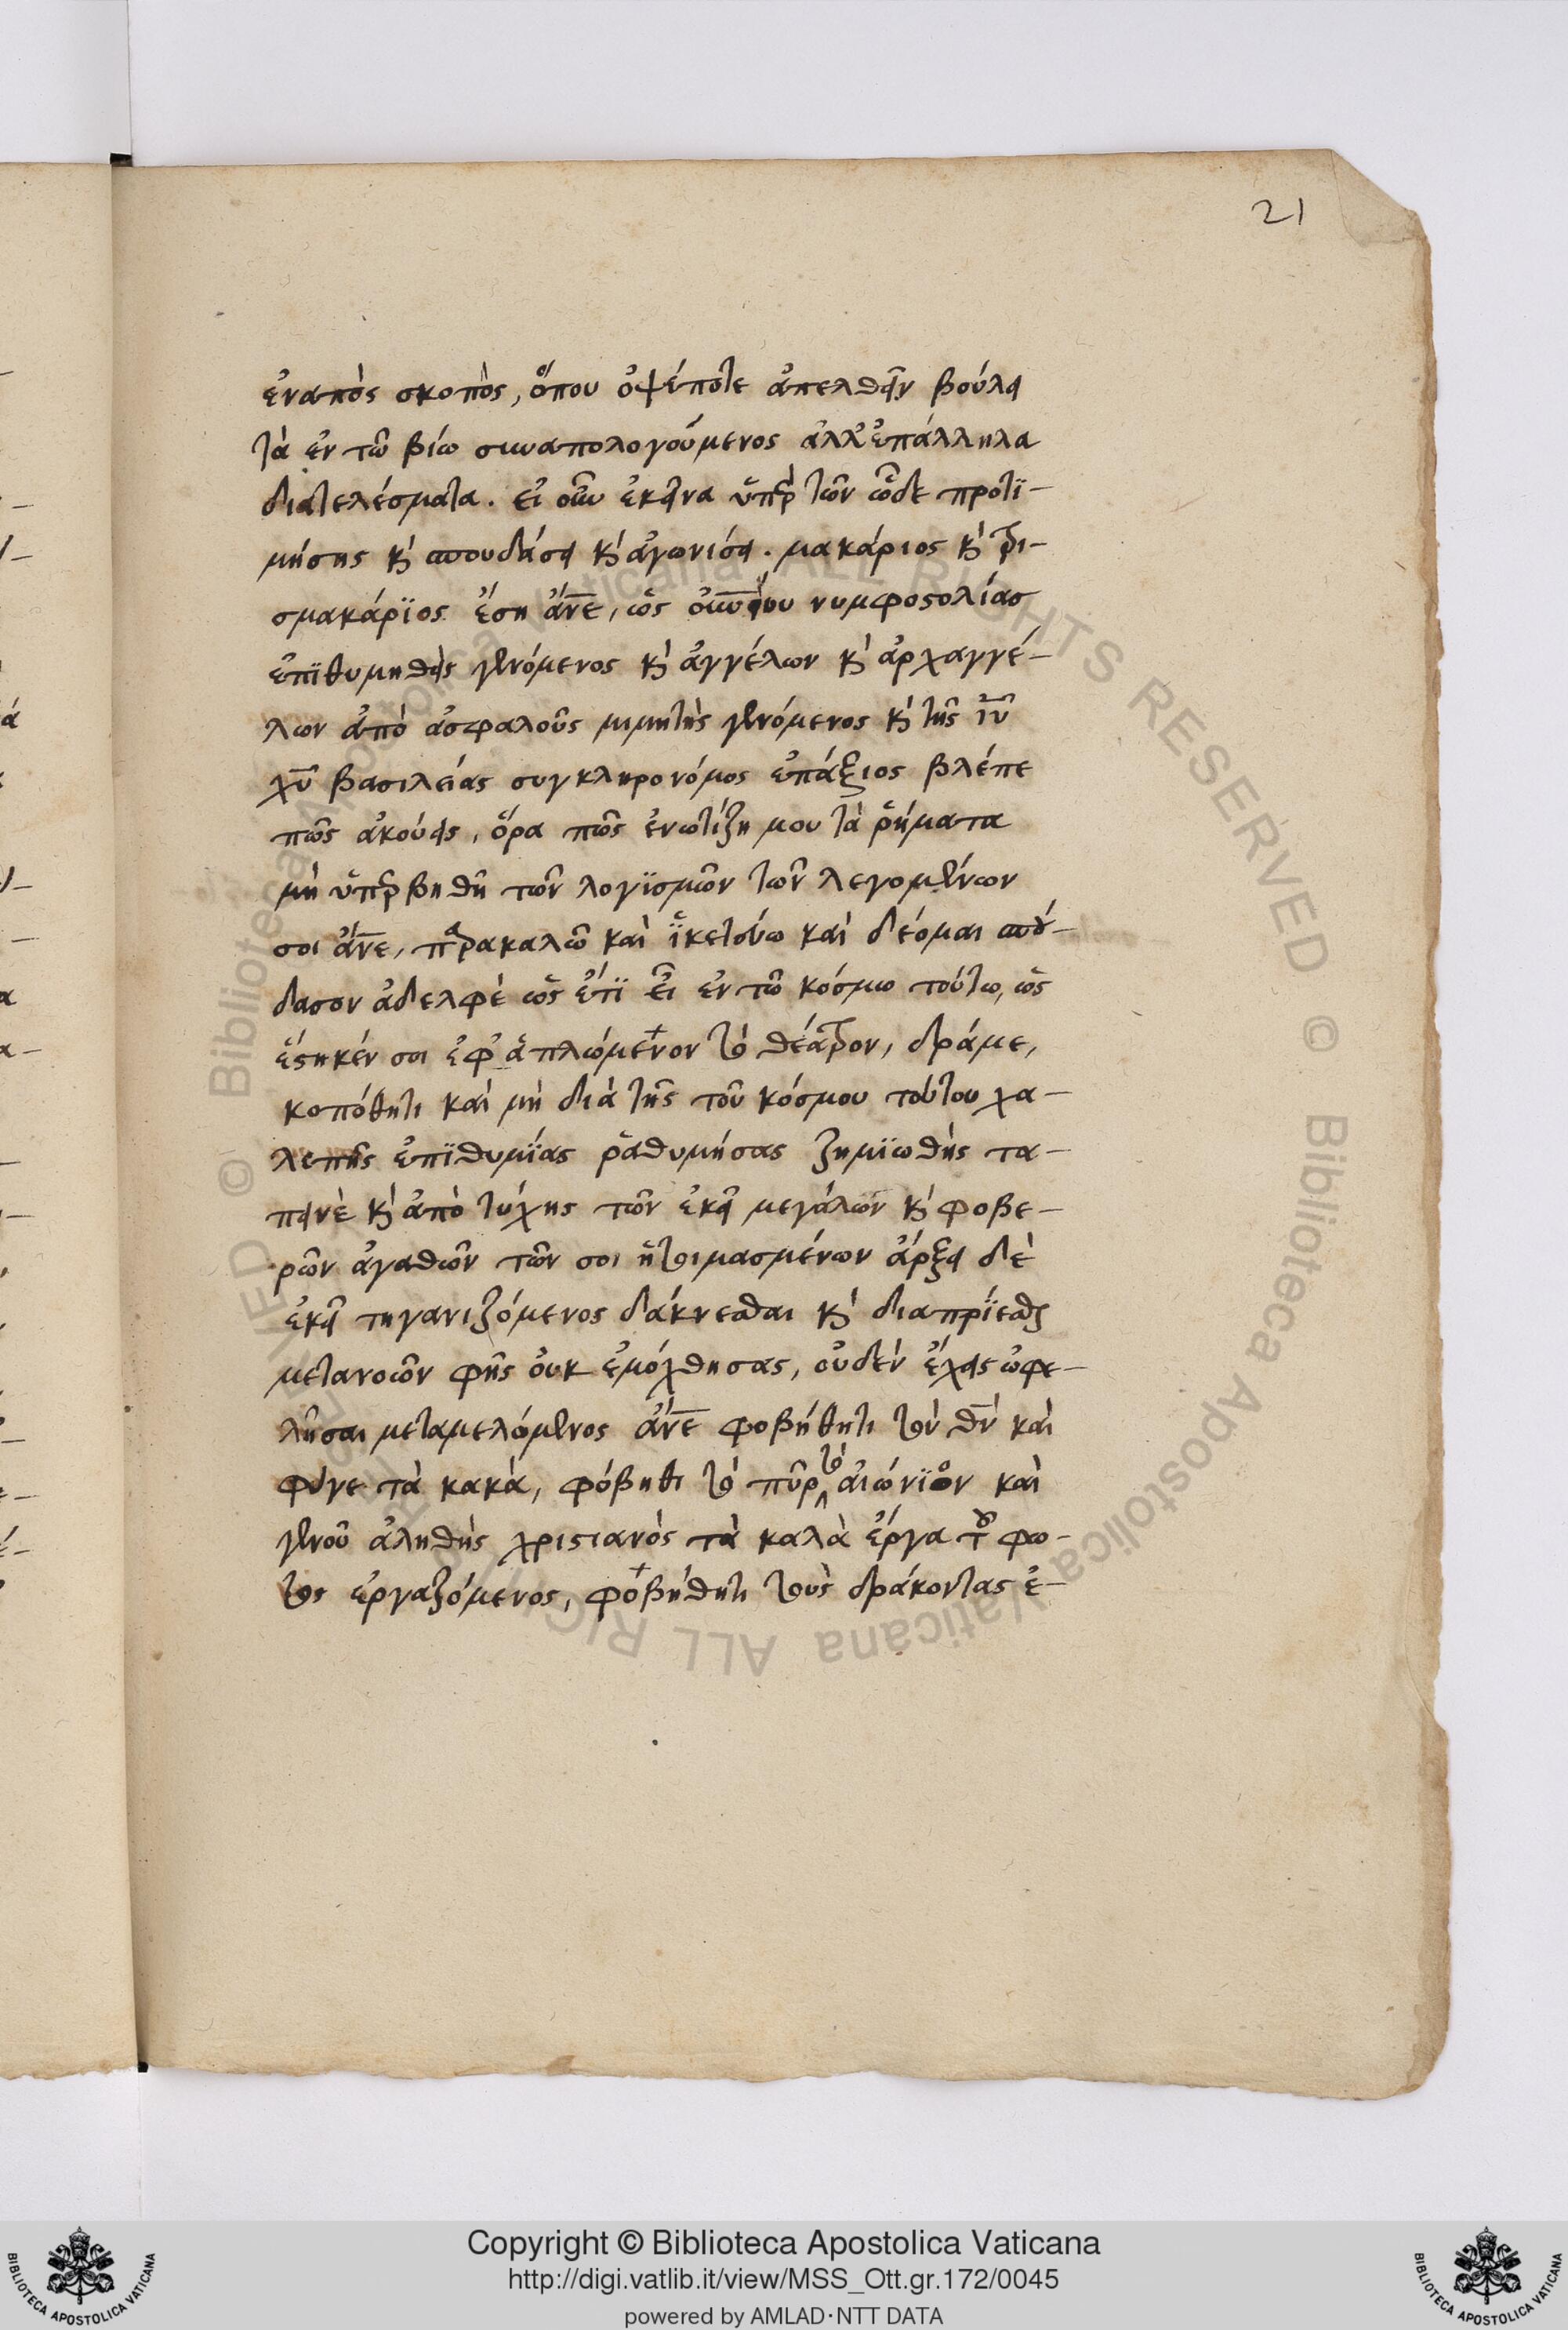 21
ἐναπὸς σκοπὸς, ὅπου ὀψέποτε ἀπελθεῖν βούλει
τὰ ἐν τῶ βίω συναπολογούμενος ἀλλ' ἐπάλληλα
διατελέσματα. εἰ οὖν ἐκεῖνα ὑπὲρ τῶν ὧδε προτϊ-
μήσης κ̀ σπουδάσει κ̀ ἀγωνιση. μακάριος κ̀ τρι-
σμακάρϊος ἔση ἄνε, ὡς νυμφοστολίασ
ἐπϊθυμηθεὶς γενόμενος κ̀ ἀγγέλων κ̀ ἀρχαγγέ-
λων ἀπὸ ἀσφαλοῦς μιμητὴς γενόμενος κ̀ τῆς ἰῦ
χῦ βασιλείας συγκληρονόμος ἐπάξιος βλέπε
πῶς ἀκούεις, ὅρα πῶς ἐνωτίζη μου τὰ ῥήματα
μὴ ὑπερβηθῆ τῶν λογϊσμῶν τῶν λεγομένων
σοι ἄνε, παρακαλῶ καὶ ἱκετεύω καὶ δέομαι σπού-
δασον ἀδελφὲ ὡς ἔτϊ εἶ ἐν τῶ κόσμω τούτω, ὡς
ἕστηκέν σοι ἐφ' ἁπλώμενον τὸ θέατρον, δράμε,
κοπόθητι καὶ μὴ διὰ τῆς τοῦ κόσμου τούτου χα-
λεπῆς ἐπϊθυμΐας ῥαθυμήσας ζημϊωθῆς τα-
πεινὲ κ̀ ἀπὸ τύχης τῶν ἐκεῖ μεγάλων κ̀ φοβε-
ρῶν ἀγαθῶν τῶν σοι ἡτοιμασμένων ἄρξει δὲ
ἐκεῖ τηγανιζόμενος δάκνεσθαι κ̀ διαπρΐεσθαι
μετανοῶν φῆς οὐκ ἐμόχθησας, οὐδὲν ἔχεις ὠφε-
λῆσαι μεταμελόμενος ἄνε φοβήθητι τὸν θν καὶ
φύγε τὰ κακά, φόβηθι τὸ πῦρ τὸ αἰώνϊον καὶ
γενοῦ ἀληθὴς χριστιανὸς τὰ καλὰ ἔργα τοῦ φω-
τὸς ἐργαζόμενος, φοβήθητι τοὺς δράκοντας ἐ-
Copyright © Biblioteca Apostolica Vaticana
http://digi.vatlib.it/view/MSS_Ott.gr.172/0045
powered by AMLAD·NTT DATA